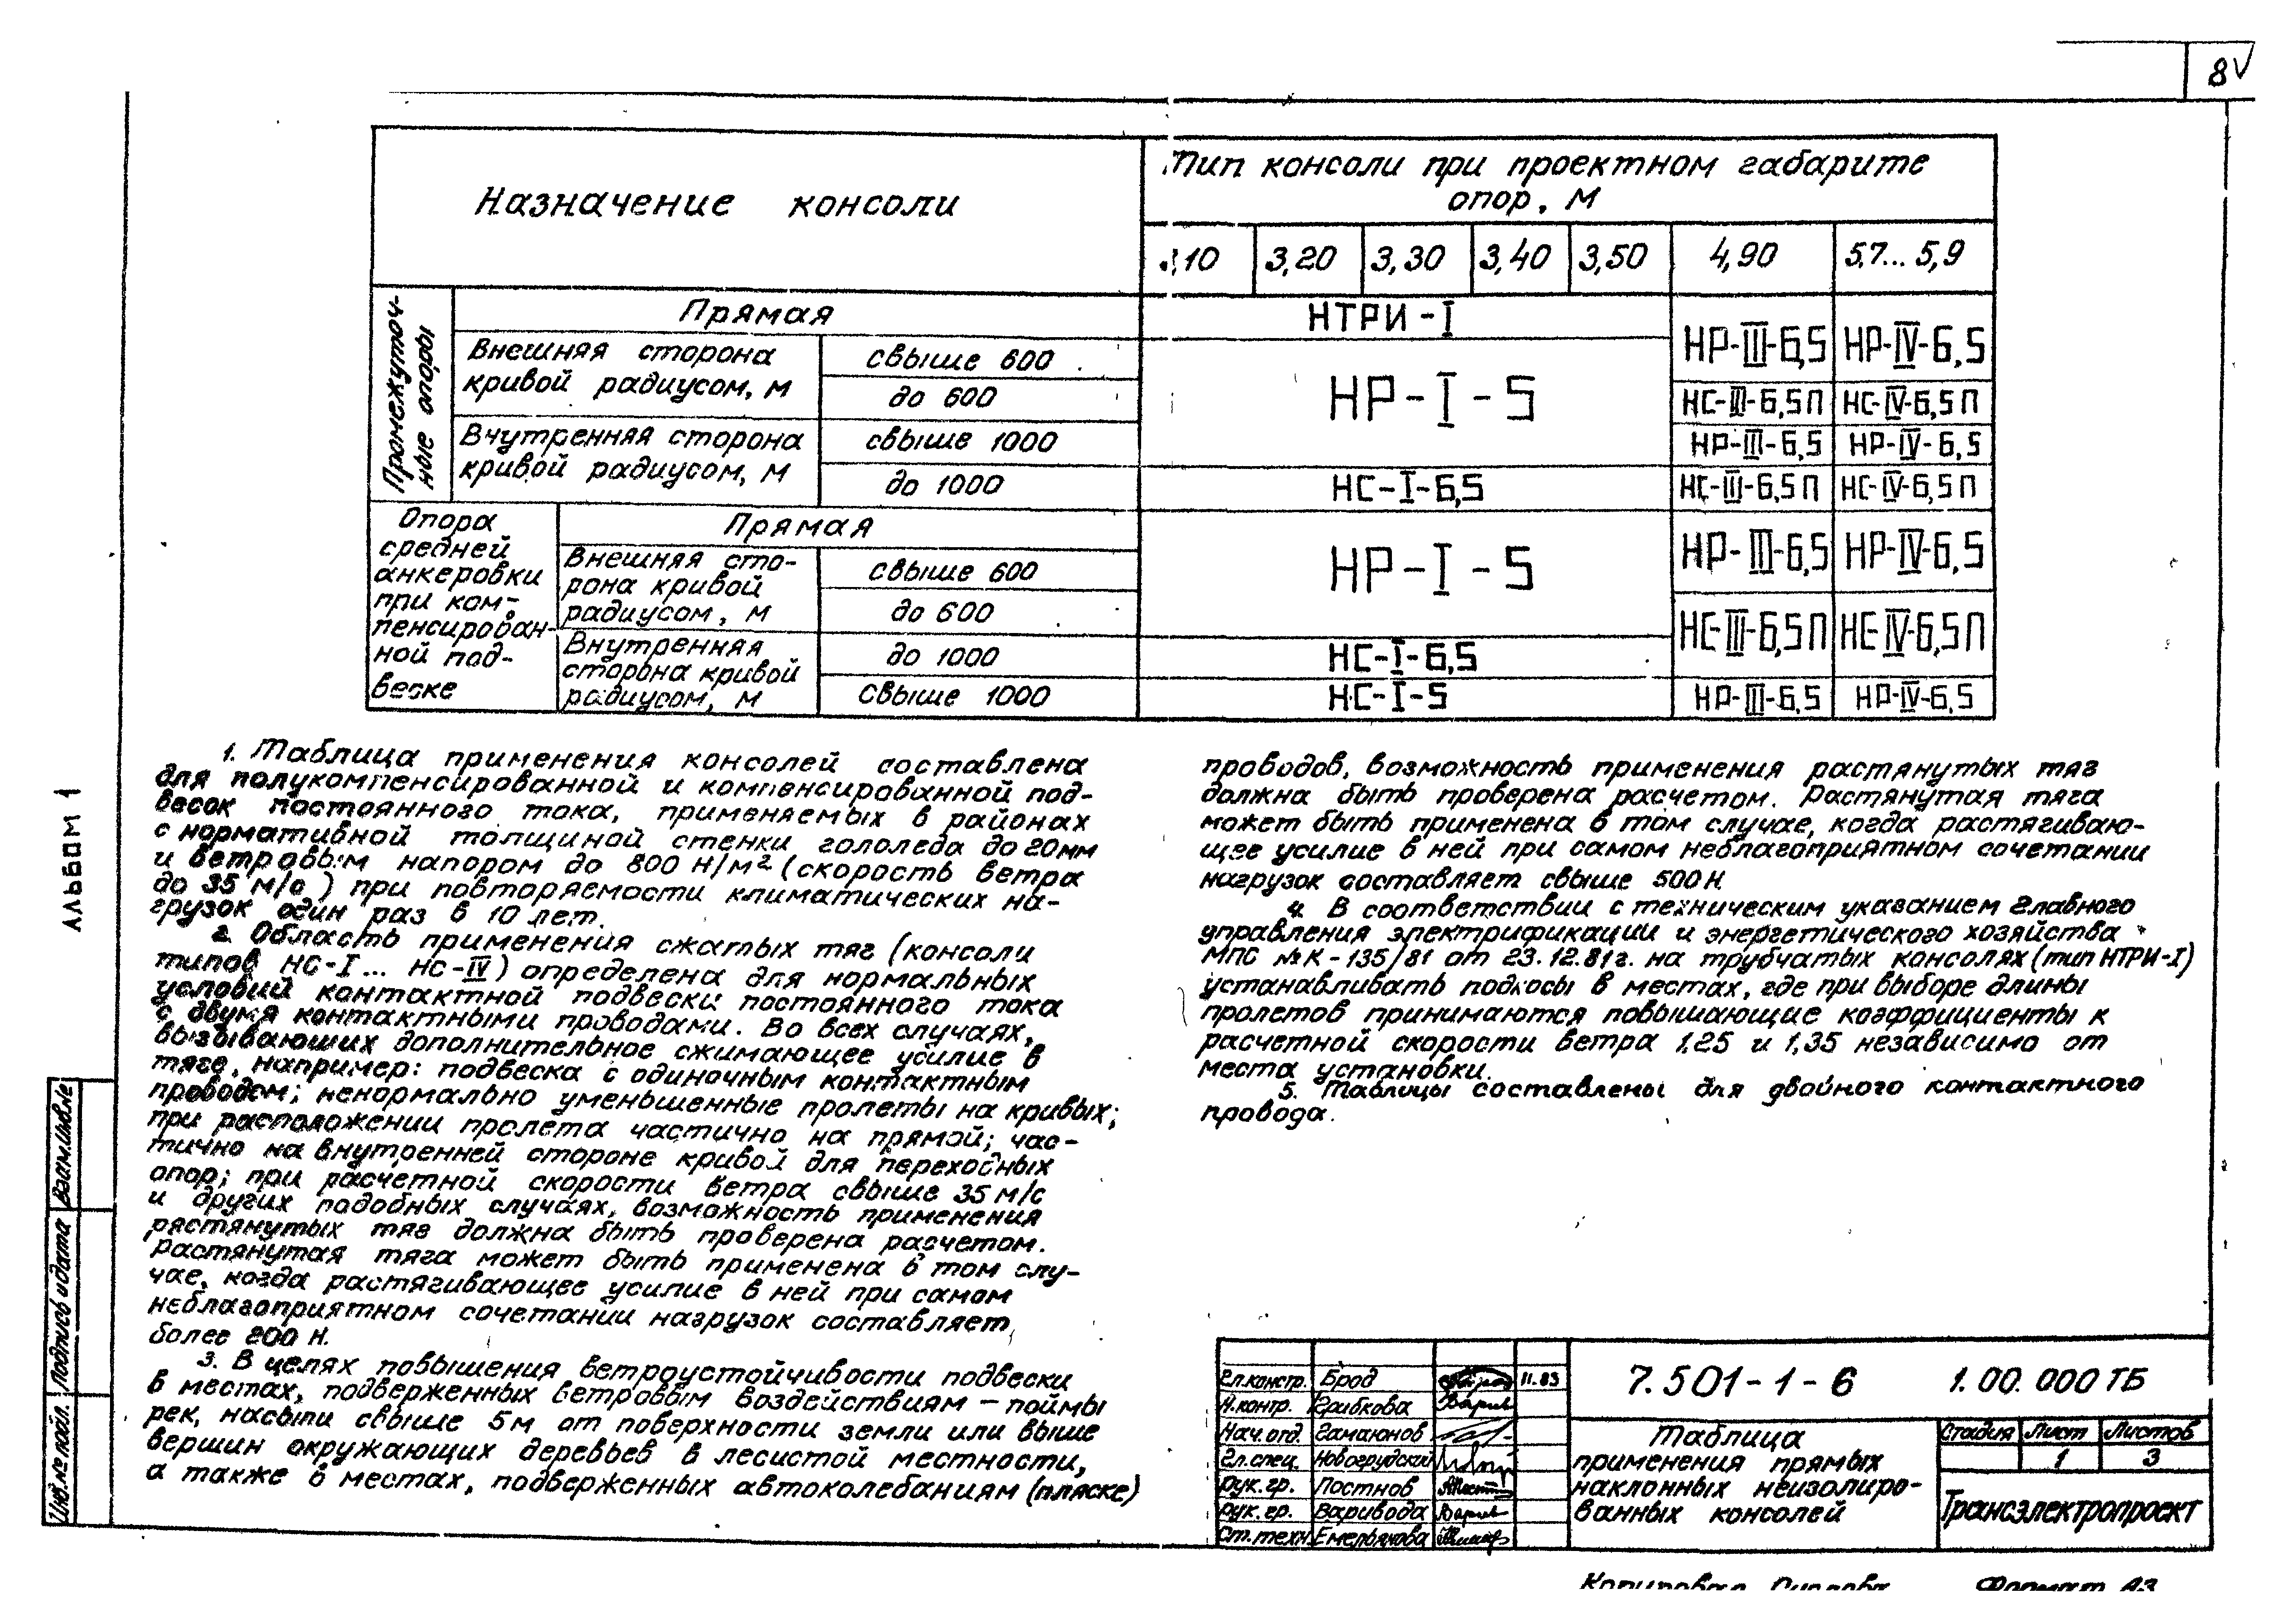 8
Назначение консоли
Тип консоли при проектном габарите
опор, м
3,20 3,30 3,40 3,50 4,90 5,7... 5,9
Промежуточ-
ные опоры
Прямая
НТРИ-I
НР-III-6,5 НР-IV-6,5
Внешняя сторона
кривой радиусом, м
свыше 600
до 600
НР-I-5
НС-III-6,5П НС-IV-6,5П
Внутренняя сторона
кривой радиусом, м
свыше 1000
НР-III-6,5 НР-IV-6,5
до 1000
НС-I-6,5
НС-III-6,5П НС-IV-6,5П
Опора
средней
анкеровки
при ком-
пенсирован-
ной под-
веске
Прямая
НР-I-5
НР-III-6,5 НР-IV-6,5
Внешняя сто-
рона кривой
радиусом, м
свыше 600
до 600
НС-III-6,5П НС-IV-6,5П
Внутренняя
сторона кривой
радиусом, м
до 1000
НС-I-6,5
свыше 1000
НС-I-5
НР-III-6,5 НР-IV-6,5
1. Таблица применения консолей составлена
для полукомпенсированной и компенсированной под-
весок постоянного тока, применяемых в районах
с нормативной толщиной стенки гололеда до 20мм
и ветровым напором до 800 Н/м² (скорость ветра
до 35 м/с) при повторяемости климатических на-
грузок один раз в 10 лет.
2. Область применения сжатых тяг (консоли
типов НС-I... НС-IV) определена для нормальных
условий контактной подвески постоянного тока
с двумя контактными проводами. Во всех случаях,
вызывающих дополнительное сжимающее усилие в
тяге, например: подвеска с одиночным контактным
проводом; ненормально уменьшенные пролеты на кривых;
при расположении пролета частично на прямой; час-
тично на внутренней стороне кривой для переходных
опор; при расчетной скорости ветра свыше 35 м/с
и других подобных случаях, возможность применения
растянутых тяг должна быть проверена расчетом.
Растянутая тяга может быть применена в том слу-
чае, когда растягивающее усилие в ней при самом
неблагоприятном сочетании нагрузок составляет
более 200 Н.
3. В целях повышения ветроустойчивости подвески
в местах, подверженных ветровым воздействиям – поймы
рек, насыпи свыше 5м от поверхности земли или выше
вершин окружающих деревьев в лесистой местности,
а также в местах, подверженных автоколебаниям (пляске)
проводов, возможность применения растянутых тяг
должна быть проверена расчетом. Растянутая тяга
может быть применена в том случае, когда растягиваю-
щее усилие в ней при самом неблагоприятном сочетании
нагрузок составляет свыше 500Н.
4. В соответствии с техническим указанием Главного
управления электрификации и энергетического хозяйства
МПС №К-135/81 от 23.12.81г. на трубчатых консолях (тип НТРИ-I)
устанавливать подкосы в местах, где при выборе длины
пролетов принимаются повышающие коэффициенты к
расчетной скорости ветра 1,25 и 1,35 независимо от
места установки.
5. Таблицы составлены для двойного контактного
провода.
Альбом 1
Взам.инв№
Подпись и дата
Инв.№ подл.
Гл.констр. Брод 11.83
Н.контр. Грибкова
Нач.отд. Гамаюнов
Гл.спец. Новогрудский
Рук.гр. Постнов
Рук.гр. Варивода
Ст.техн. Емельянова
7.501-1-6 1.00.000 ТБ
Таблица
применения прямых
наклонных неизолиро-
ванных консолей
Стадия Лист Листов
1 3
Трансэлектропроект
Формат А3